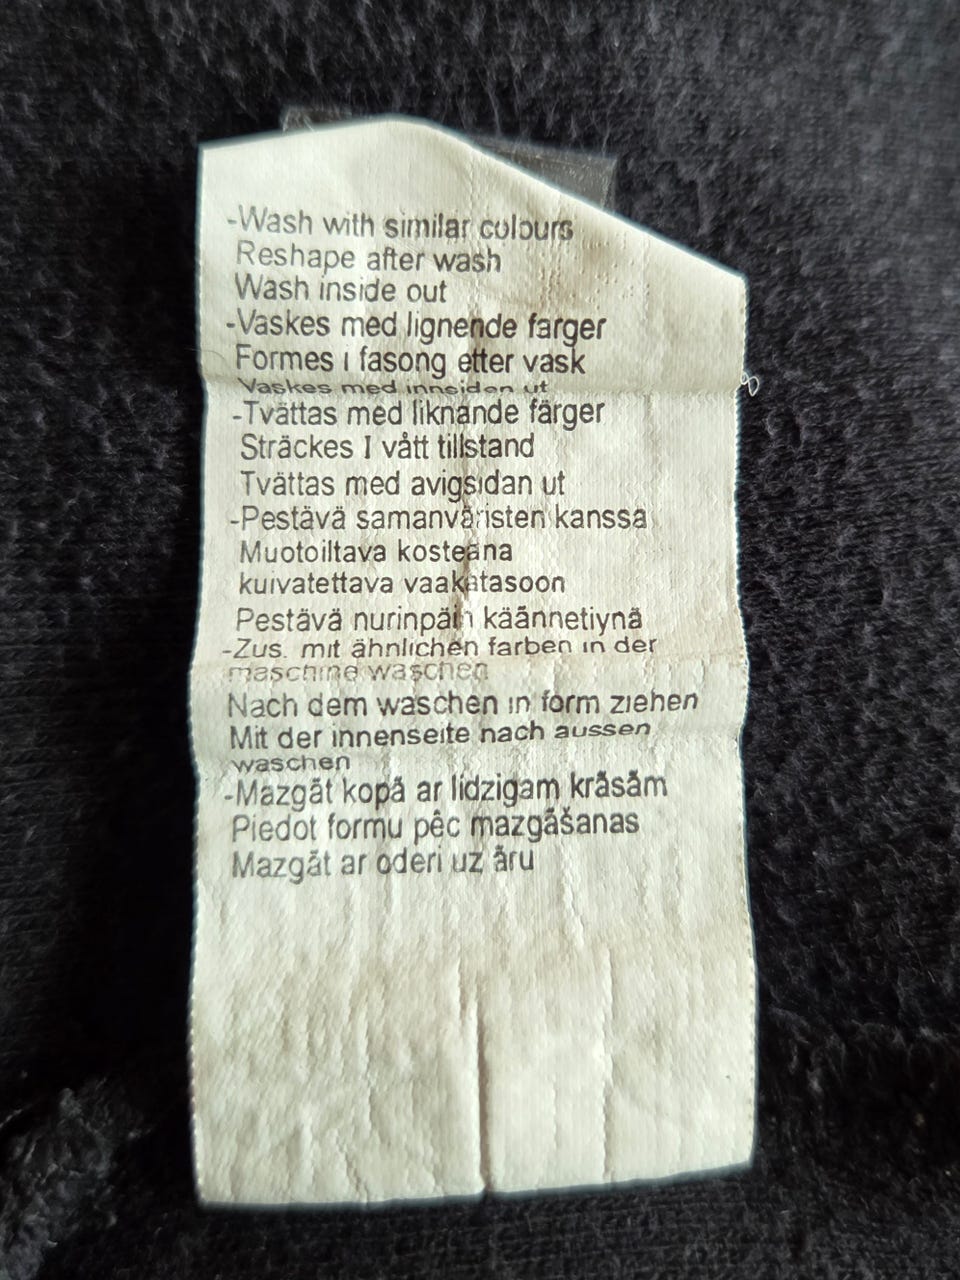 -Wash with similar colours
Reshape after wash
Wash inside out
-Vaskes med lignende farger
Formes i fasong etter vask
Vaskes med innsiden ut
-Tvättas med liknande färger
Sträckes I vått tillstand
Tvättas med avigsidan ut
-Pestävä samanväristen kanssa
Muotoiltava kosteana
kuivatettava vaakatasoon
Pestävä nurinpäin käännetiynä
-Zus. mit ähnlichen farben in der
maschine waschen
Nach dem waschen in form ziehen
Mit der innenseite nach aussen
waschen
-Mazgãt kopã ar lidzigam krãsãm
Piedot formu pêc mazgãšanas
Mazgãt ar oderi uz ãru